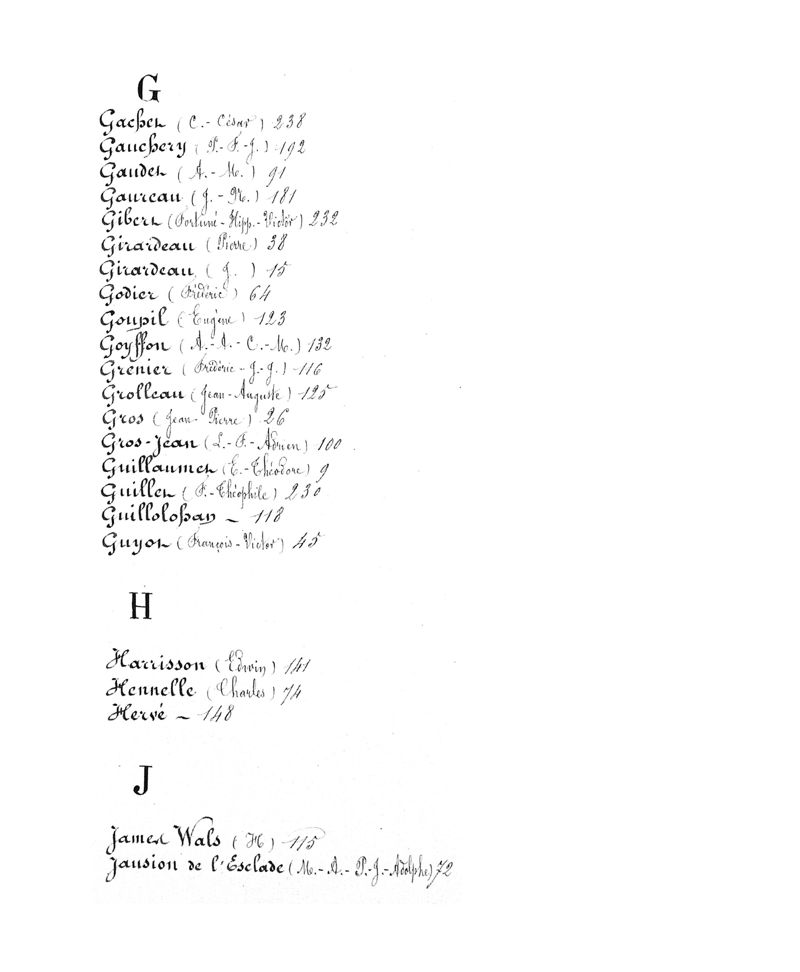 G
Gachet (C.- César) 238
Gauchery (P.- F.- J.) 192
Gaudet (A.- M.) 91
Gaureau (J.- M.) 181
Gibert (Fortuné - Hipp.- Victor) 232
Girardeau (Pierre) 38
Girardeau (J. ) 15
Godier (Frédéric) 64
Goupil (Eugène) 123
Goyffon (A.- A.- C.- M.) 132
Grenier (Frédéric - J.- J.) 116
Grolleau (Jean - Auguste) 125
Gros (Jean - Pierre) 26
Gros-Jean (L.- F.- Adrien) 100
Guillaumet (E.- Théodore) 9
Guillet (F.- Théophile) 230
Guillolohan - 118
Guyot (François - Victor) 45
H
Harrisson (Edwin) 141
Hennelle (Charles) 74
Hervé - 148
J
James Wals (H) 115
Jausion de l'Esclade (M.- A.- P.- J.- Adolphe) 72